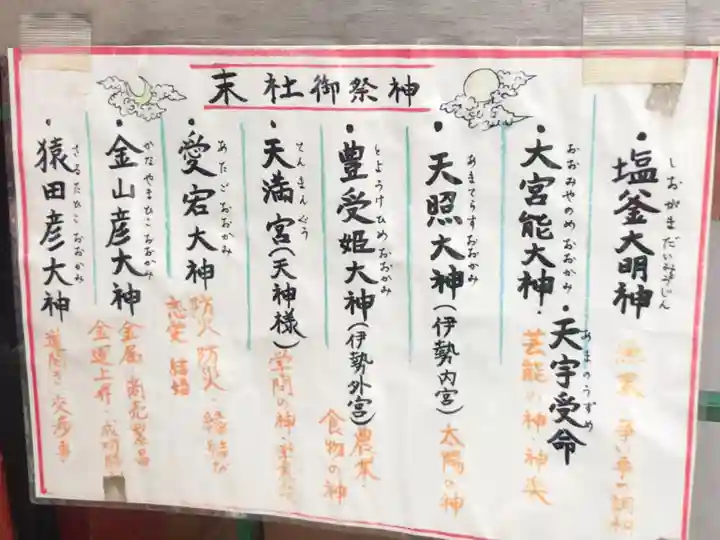 末社御祭神
・塩釜大明神
しおがまだいみょうじん
争い事の調和
・大宮能大神・天宇受命
おおみやのめおおかみ
あまのうずめ
芸能の神・神楽
・天照大神(伊勢内宮)
あまてらすおおかみ
太陽の神
・豊受姫大神(伊勢外宮)
とようけひめおおかみ
農業・
食物の神
・天満宮(天神様)
てんまんぐう
学問の神・
・愛宕大神
あたごおおかみ
防火・防災・縁結び
・金山彦大神
かなやまひこおおかみ
金属・商売繁昌
金運上昇・成功
・猿田彦大神
さるたひこおおかみ
道開き・交